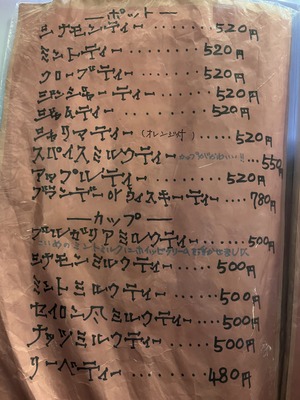 ーポットー
シナモンティー・・・・・・・520円
ミントティー・・・・・・・520円
クローブティー・・・・・・・520円
ジンジャーティー・・・・・・520円
ジャムティー・・・・・・520円
シャリマティー(オレンジ付)・・・・・520円
スパイスミルクティー カップがかわいい!!・・・550円
アップルティー・・・・・・520円
ブランデーorウィスキーティー・・・780円
ーカップー
ブルガリアミルクティー・・・・・500円
ミントミルクに
シナモンミルクティー・・・・・500円
ミントミルクティー・・・・・500円
セイロン風ミルクティー・・・・・500円
ナッツミルクティー・・・・・500円
ハーベティー・・・・・・・・480円